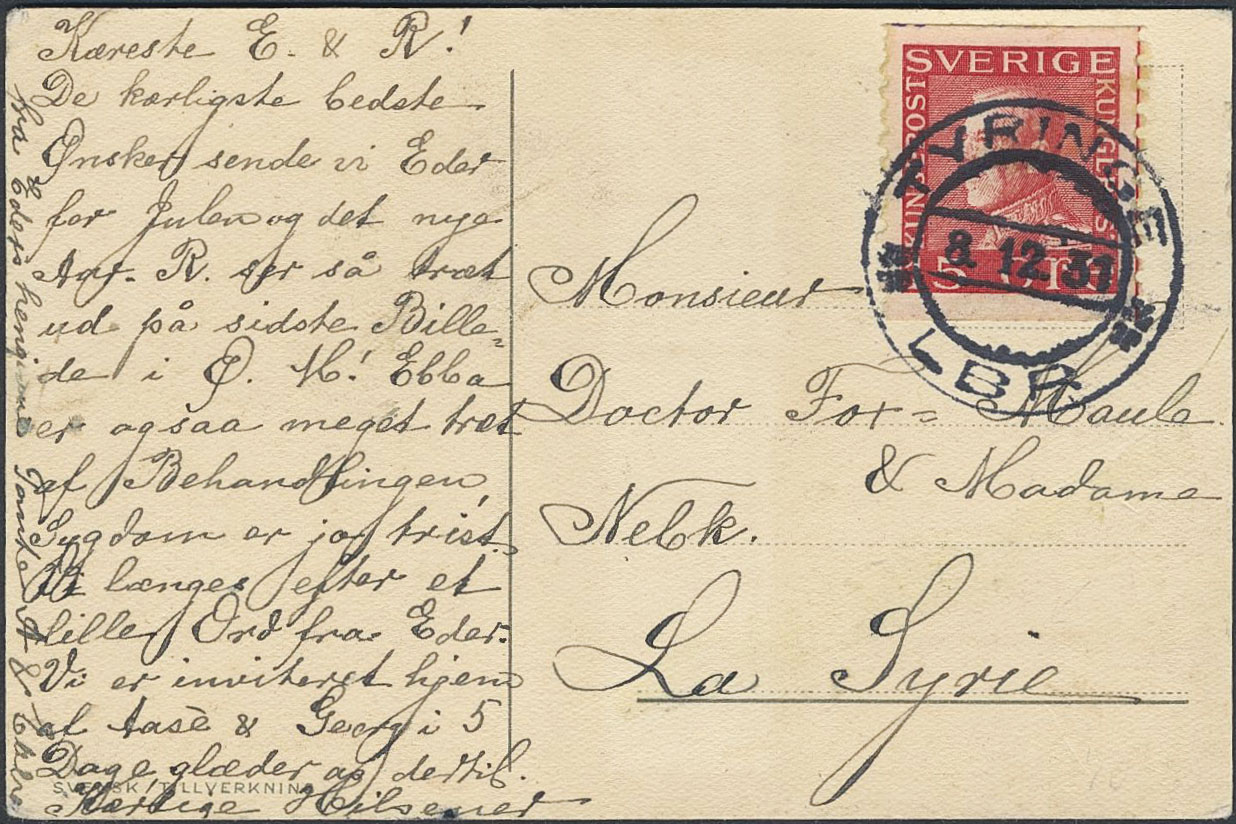 Kæreste E. & R!
De kærligste bedste
Ønsker sende vi Eder
for Julen og det nye
Aar. R. ser så træt
ud på sidste Bille=
de i Ø. M! Ebba
er ogsaa meget træt
af Behandlingen
Sygdom er jo trist!
Vi længes efter et
lille Ord fra Eder.
Vi er inviteret hjem
af Aase & Georg i 5
Dage glæder os dertil.
Kærlige Hilsener
fra Eders hengivne Tante A & Ebba
SVENSK TILLVERKNING
SVERIGE
KUNGL.
POST
5
TYRINGE
8.12.31
LBR.
Monsieur
Doctor Fox = Maule
& Madame
Nebk.
La Syrie